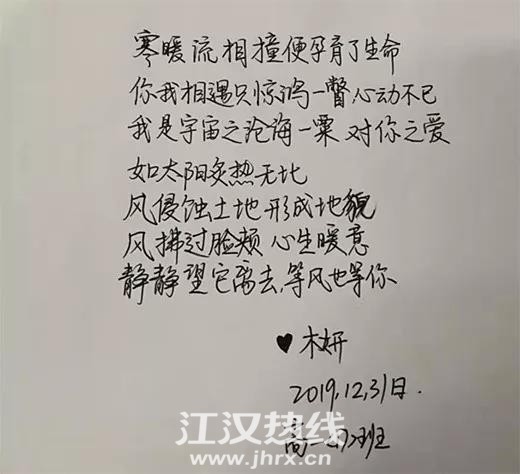 寒暖流相撞便孕育了生命
你我相遇只惊鸿一瞥心动不已
我是宇宙之沧海一粟 对你之爱
如太阳炙热无比
风侵蚀土地形成地貌
风拂过脸颊 心生暖意
静静望它离去,等风也等你
♥木妍
2019,12,31日.
高一 班
江汉热线
www.jhrx.cn